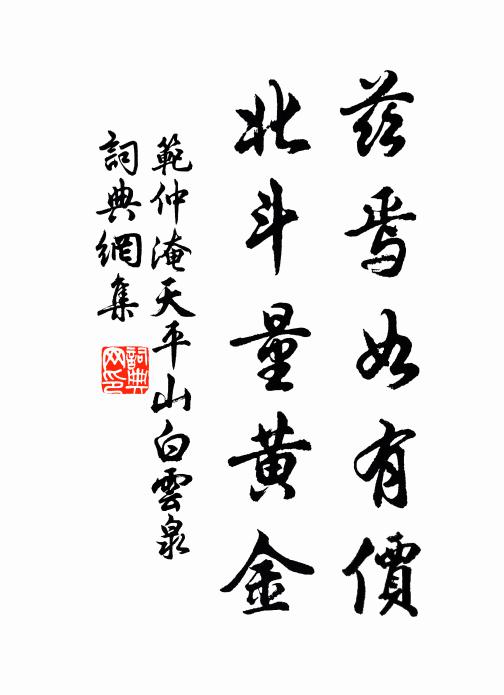 茲焉如有價
北斗量黃金
範仲淹天平山白雲泉
詞典網集
詞典网印